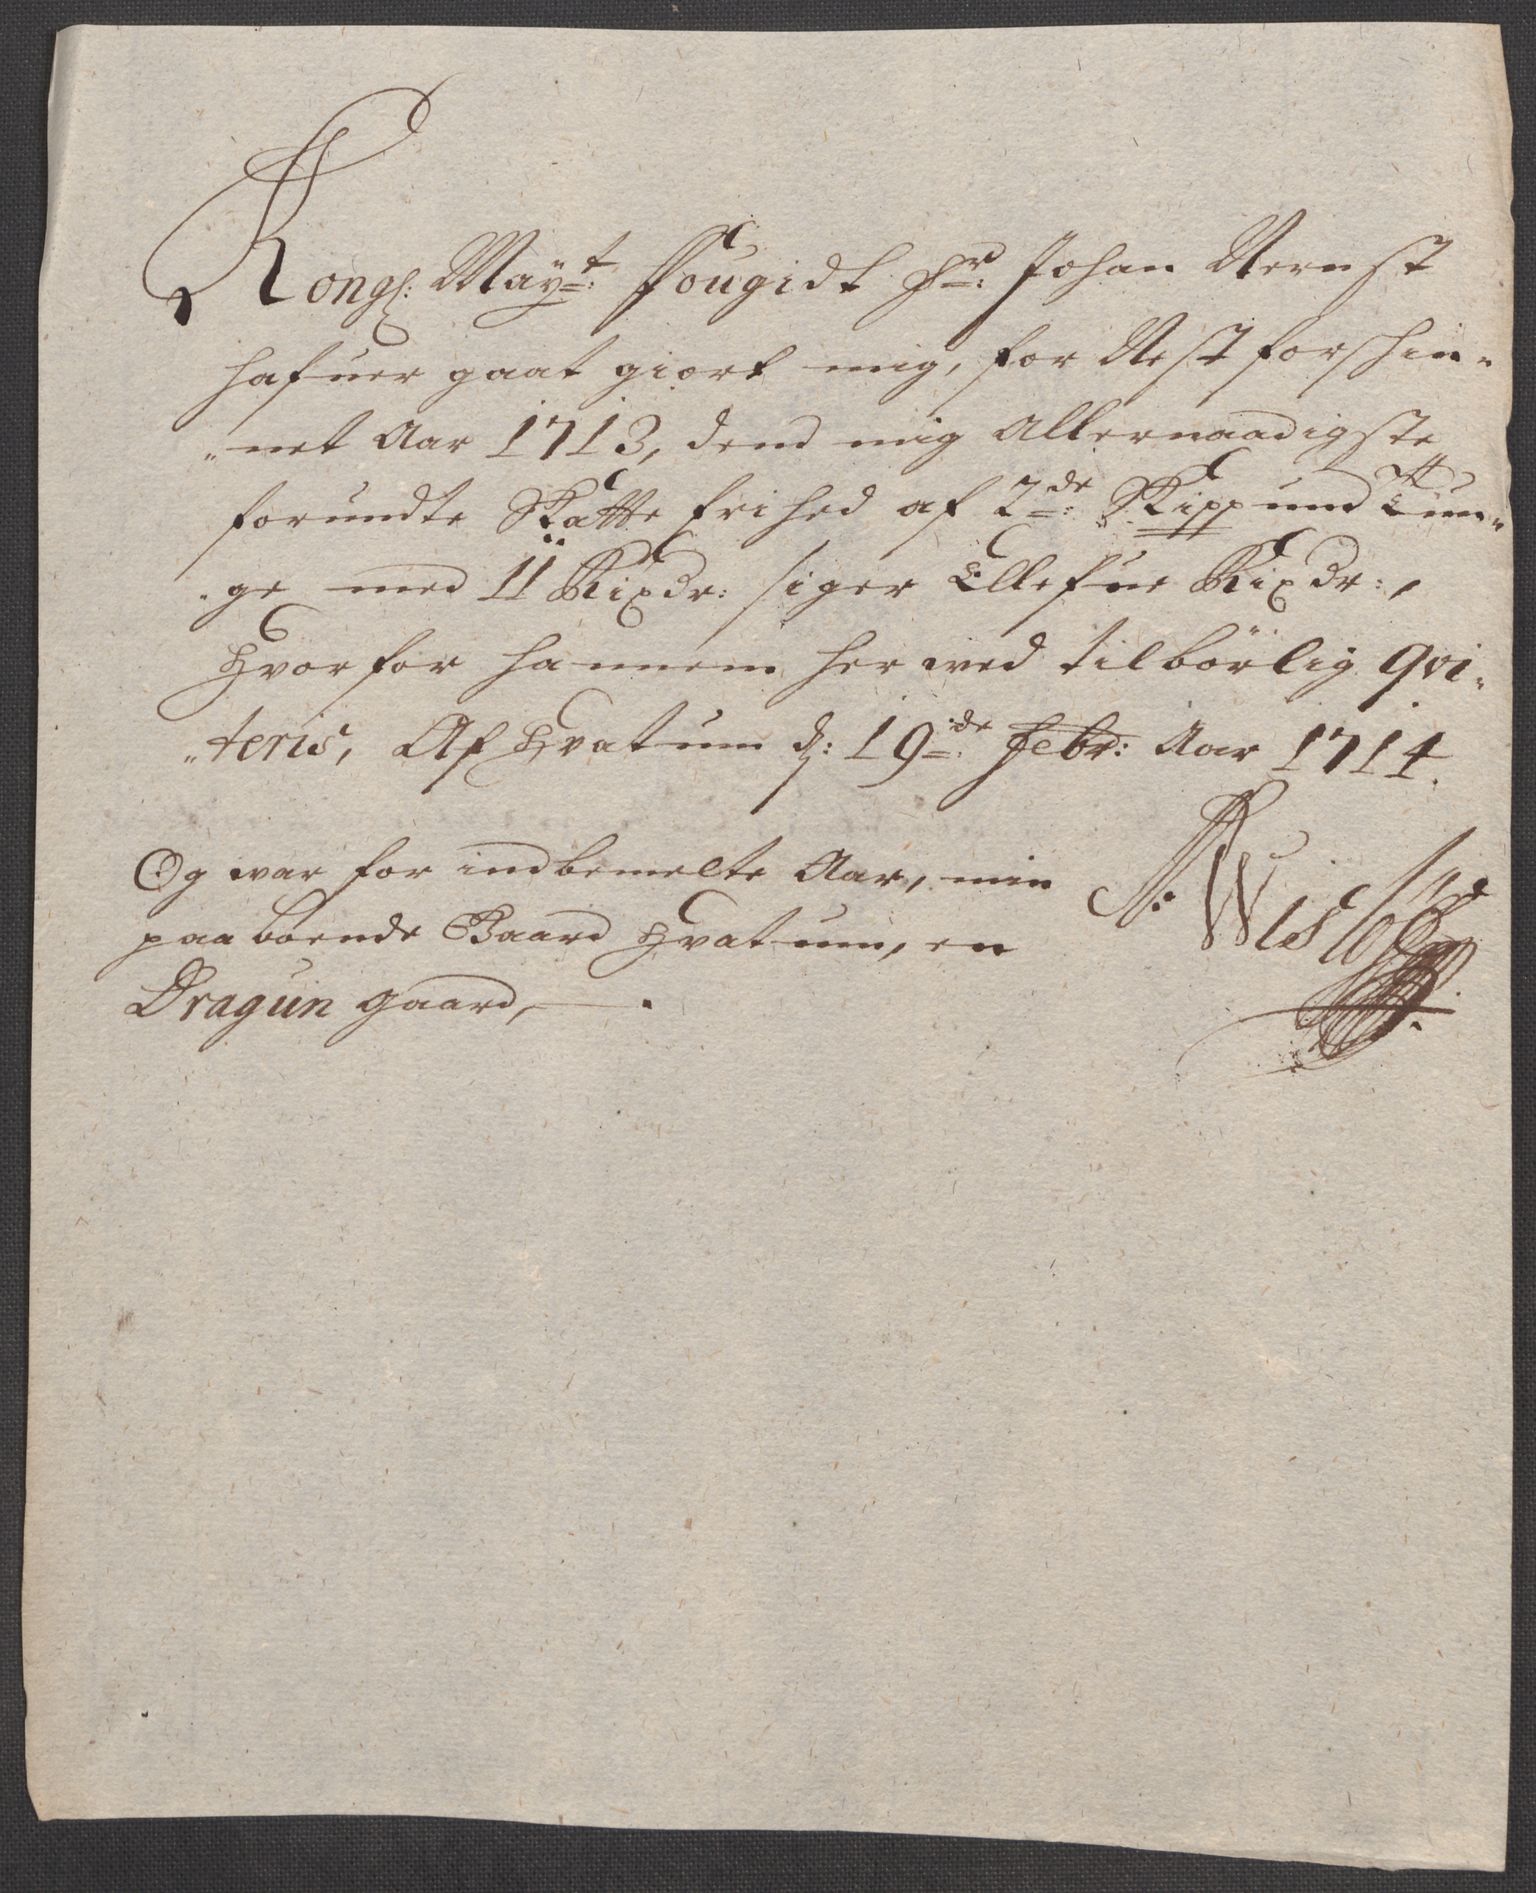 Kongl: May=t: Fougidt H=r: Johan Nernst
hafuer gaat giort mig, for Nest forshin„
„net Aar 1713, dend mig Allernaadigste
forundte Skatte frihed af 2=de: Skippund Tun„
„ge med 11 Rixdr: siger Ellefue Rixdr:,
Hvorfor hannem her med tilbörlig qvi„
„teris, Af Hvatum d: 19=de: Febr: Aar 1714.
Og war for indbemelte Aar, min
paa boende Gaard Hvatum, en
Dragun gaard, .